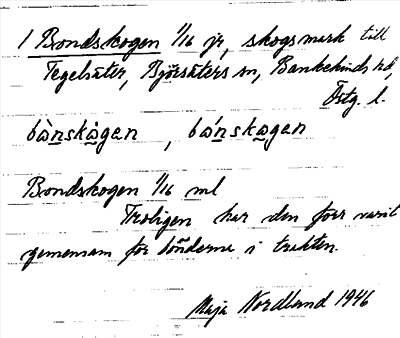 1 Bondskogen 1/16 jr, skogsmark till
Tegelsäter, Björsäters sn, Bankekinds hd,
Östg. l.
bɷ̀nskɷgen, bɷ́nskɷgen
Bondskogen 1/16 ml
Troligen har den förr varit
gemensam för bönderna i trakten.
Maja Nordlund 1946